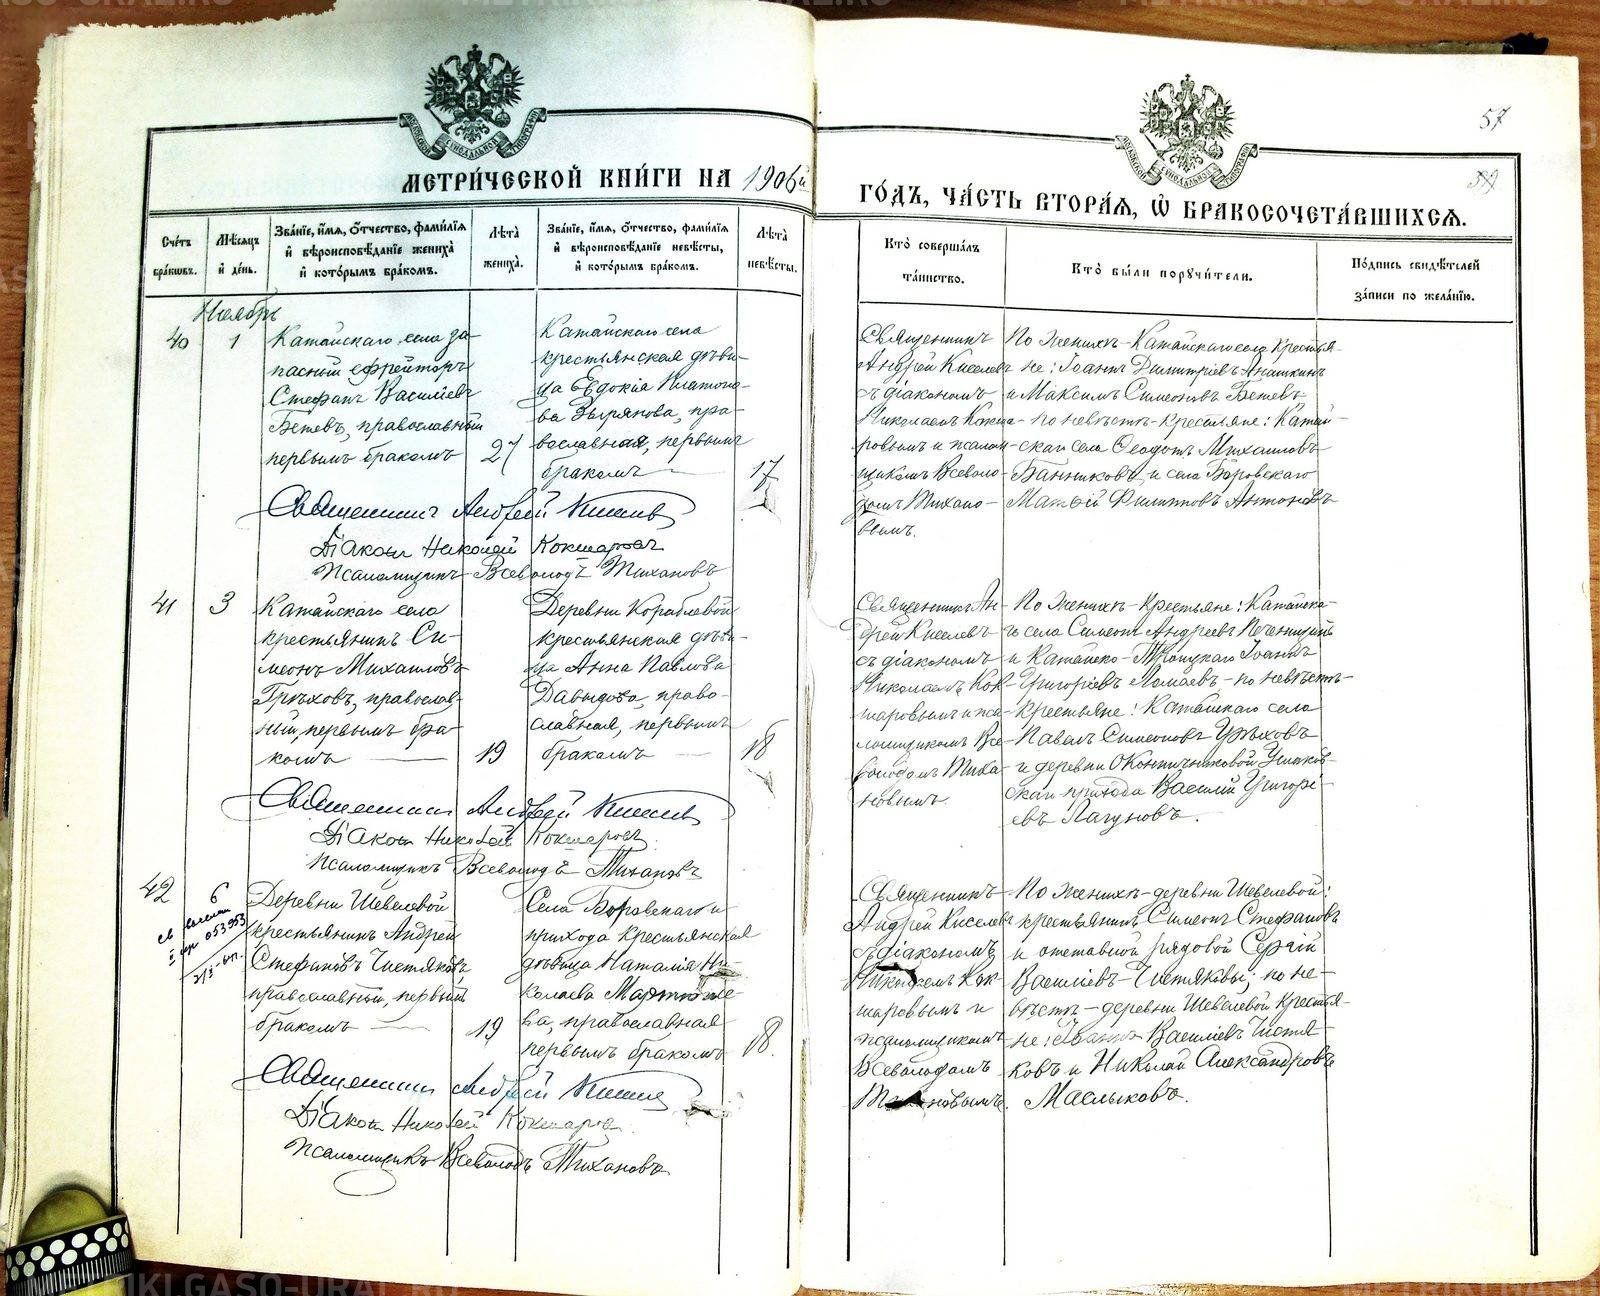 METRIKI.GASO-URAL.RU
57
МЕТРИ́ЧЕСКОЙ КНИ́ГИ НА 1906й
ГО́ДЪ, ЧА́СТЬ ВТОРА́Я, Ѡ БРАКОСОЧЕТА́ВШИХСЯ.
Сче́тъ бра́кѡвъ.
Мѣ́сяцъ и де́нь.
Зва́нїе, и́мя, о́тчество, фами́лїя
и҆ вѣроисповѣ́данїе жениха̀
и҆ кото́рымъ бра́комъ.
Лѣ́та
жениха̀.
Зва́нїе, и́мя, о́тчество, фами́лїя
и҆ вѣроисповѣ́данїе невѣ́сты,
и҆ кото́рымъ бра́комъ.
Лѣ́та
невѣ́сты.
Кто̀ соверша́лъ
та́инство.
Кто̀ бы́ли порꙋчи́тели.
По́дпись свидѣ́телей
за́писи по жела́нїю.
Ноябрь
40
1
Катайскаго села за-
пасный ефрейторъ
Стефанъ Василіевъ
Бетевъ, православный
первымъ бракомъ
27
Катайскаго села
крестьянская дѣви-
ца Евдокія Платоно-
ва Зырянова, пра-
вославная, первымъ
бракомъ
17
Священникъ
Андрей Киселевъ
съ діакономъ
Николаемъ Кокша-
ровымъ и псалом-
щикомъ Всеволо-
домъ Тихано-
вымъ.
По женихѣ - Катайскаго села крестья-
не: Іоаннъ Димитріевъ Анашкинъ
и Максимъ Симеоновъ Бетевъ
по невѣстѣ - крестьяне: Катай-
скаго села Ѳеодотъ Михаиловъ
Банниковъ и села Боровскаго
Матѳей Филипповъ Антоновъ
Священникъ Андрей Киселевъ
Діаконъ Николай Кокшаровъ
Псаломщикъ Всеволодъ Тихановъ
41
3
Катайскаго села
крестьянинъ Си-
меонъ Михаиловъ
Грѣховъ, православ-
ный, первымъ бра-
комъ
19
Деревни Кораблевой
крестьянская дѣви-
ца Анна Павлова
Давыдова, право-
славная, первымъ
бракомъ
18
Священникъ Ан-
дрей Киселевъ
съ діакономъ
Николаемъ Кок-
шаровымъ и пса-
ломщикомъ Все-
володомъ Тиха-
новымъ.
По женихѣ - крестьяне: Катайска-
го села Симеонъ Андреевъ Печеницынъ
и Катайско-Троицкаго Іоаннъ
Григоріевъ Ломаевъ - по невѣстѣ -
крестьяне: Катайскаго села
Павелъ Симеоновъ Грѣховъ
и деревни Оконничниковой
скаго прихода Василій Григорі-
евъ Лагуновъ.
Священникъ Андрей Киселевъ
Діаконъ Николай Кокшаровъ
Псаломщикъ Всеволодъ Тихановъ
42
6
053953
Деревни Шевелевой
крестьянинъ Андрей
Стефановъ Чистяковъ
православный, первымъ
бракомъ
19
Села Боровскаго и
прихода крестьянская
дѣвица Наталія Ни-
колаева Мартюше-
ва, православная
первымъ бракомъ
18.
Священникъ
Андрей Киселевъ
съ діакономъ
Николаемъ Кок-
шаровымъ и
псаломщикомъ
Всеволодомъ
Тихановымъ.
По женихѣ - деревни Шевелевой:
крестьянинъ Симеонъ Стефановъ
и отставной рядовой Сергій
Василіевъ Чистяковы; по не-
вѣстѣ - деревни Шевелевой крестья-
не: Іоаннъ Василіевъ Чистя-
ковъ и Николай Александровъ
Маслыковъ.
Священникъ Андрей Киселевъ
Діаконъ Николай Кокшаровъ
Псаломщикъ Всеволодъ Тихановъ
METRIKI.GASO-URAL.RU